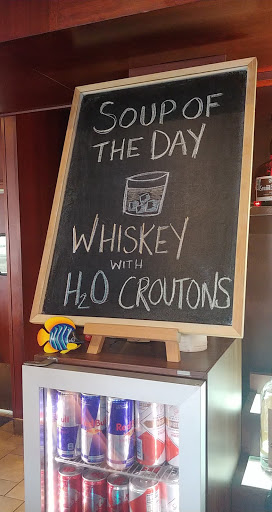 SOUP OF
THE DAY
WHISKEY
WITH
H₂O CROUTONS
Red Bull